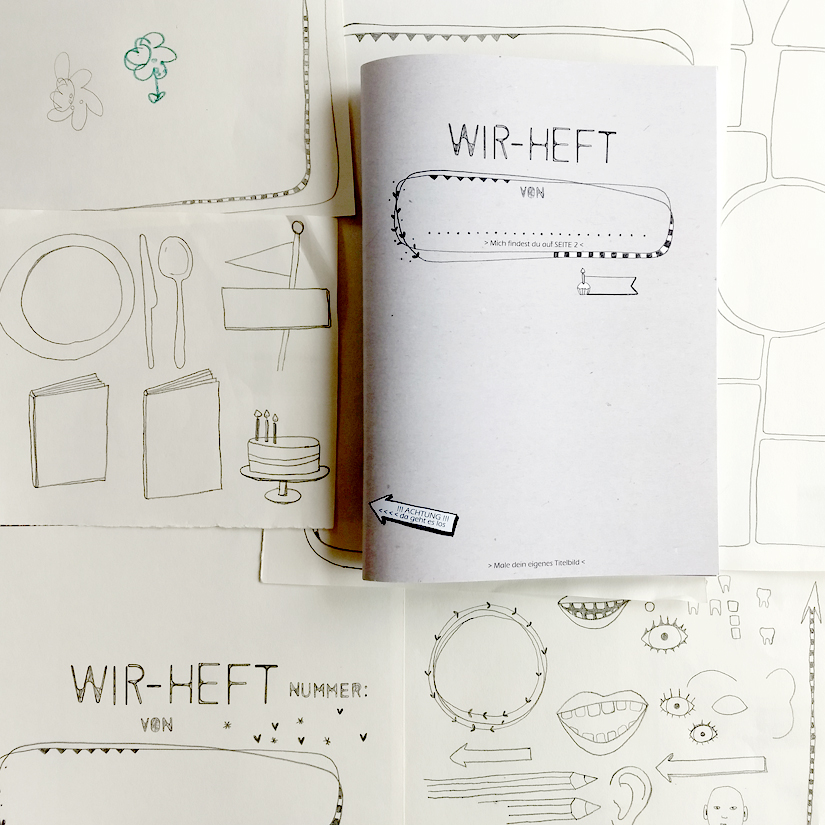 WIR-HEFT
VON
> Mich findest du auf SEITE 2 <
!!! ACHTUNG !!!
<<<< da geht es los
> Male dein eigenes Titelbild <
WIR-HEFT NUMMER:
VON